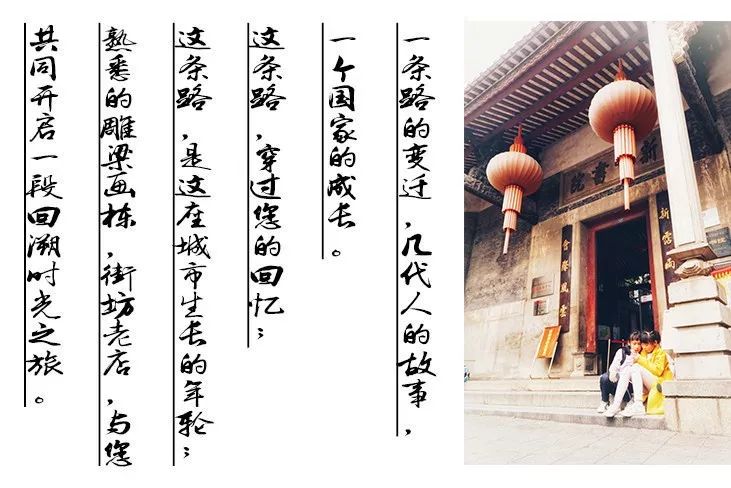 一条路的变迁，几代人的故事，
一个国家的成长。
这条路，穿过您的回忆；
这条路，是这座城市生长的年轮；
熟悉的雕梁画栋，街坊老店，与您
共同开启一段回溯时光之旅。
書院
會聚風雲